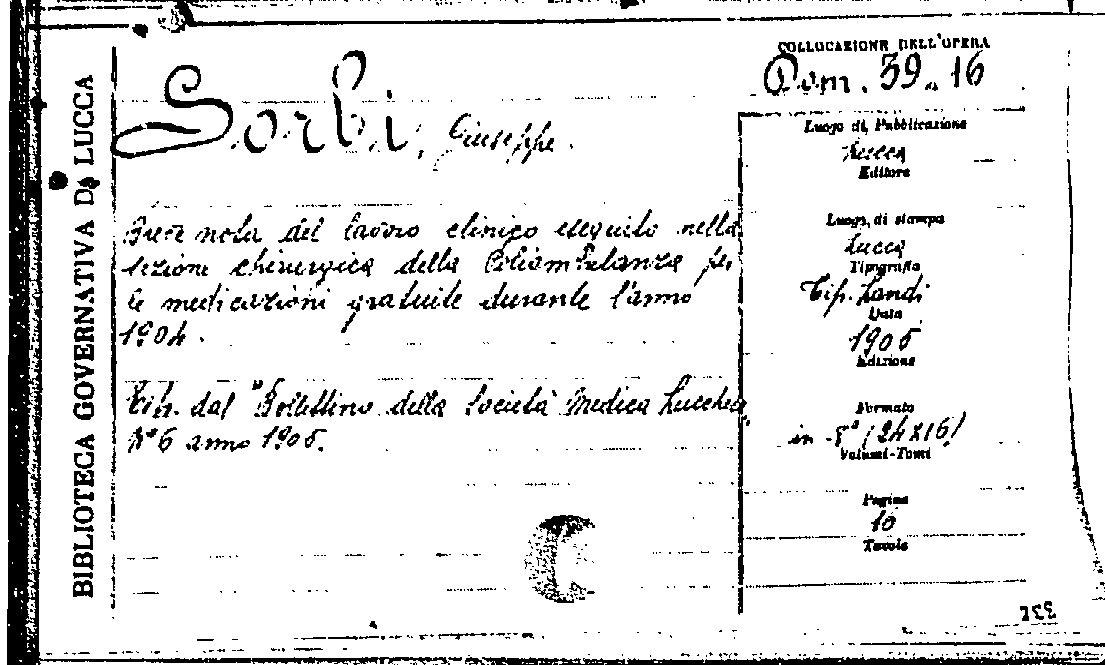 BIBLIOTECA GOVERNATIVA DI LUCCA
COLLOCAZIONE DELL'OPERA
Dom. 39. 16
Sorbi, Giuseppe.
Luogo di Pubblicazione
Lucca
Editore
Breve nota del lavoro clinico eseguito nella
sezione chirurgica della Poliambulanza per
le medicazioni gratuite durante l'anno
1904.
Estr. dal "Bollettino della Società Medica Lucchese
N° 6 anno 1905.
Luogo di stampa
Lucca
Tipografia
Tip. Landi
Data
1905
Edizione
Formato
in 8° (24x16)
Volumi-Tomi
Pagine
10
Tavole